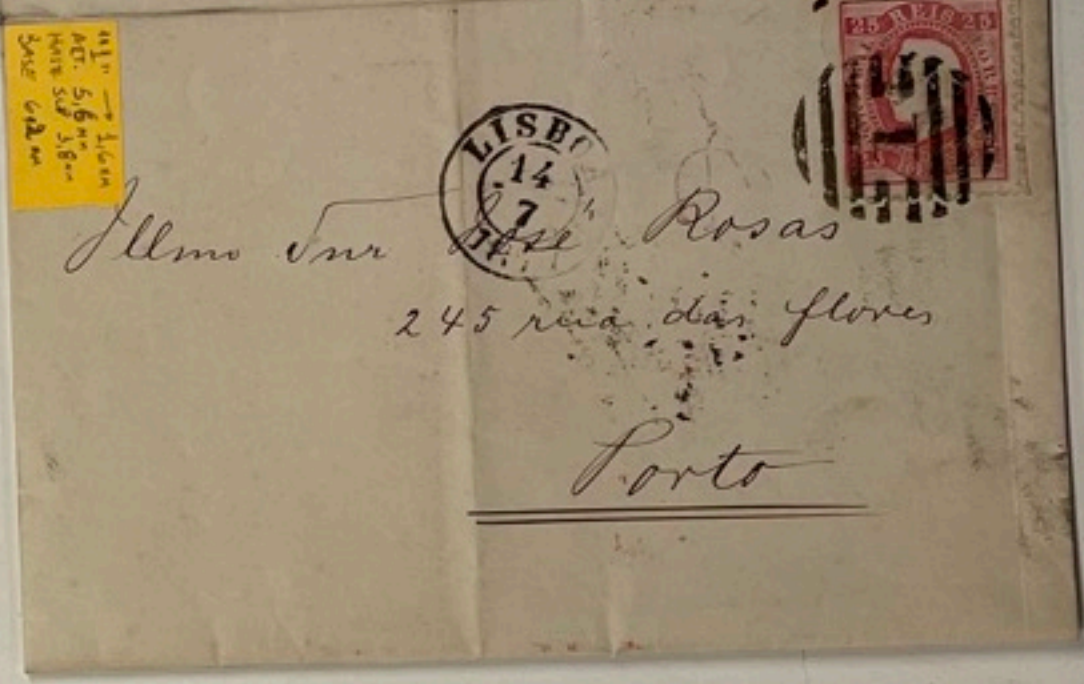 "1" → 1,6 mm
ALT. 5,6 mm
HASTE SUP 3,8 mm
BASE 6,2 mm
25 REIS 25
1
LISBO
14
7
Illmo Snr José Rosas
245 rua das flores
Porto